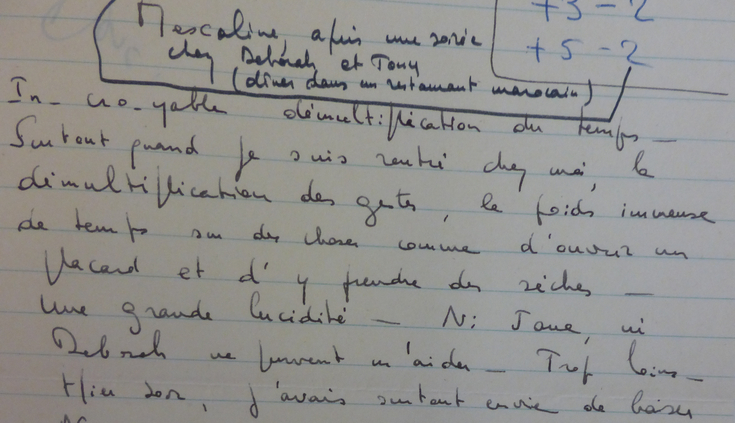 +3 -2
Mescaline, après une soirée
+5 -2
chez Deborah et Tony
(dîner dans un restaurant marocain)
In-cro-yable démultiplication du temps -
Surtout quand je suis rentré chez moi, la
démultiplication des gestes, le poids immense
de temps sur des choses comme d'ouvrir un
placard et d'y prendre des sèches -
Une grande lucidité - Ni Tony, ni
Deborah ne peuvent m'aider - Trop loins -
soir, j'avais surtout envie de baiser